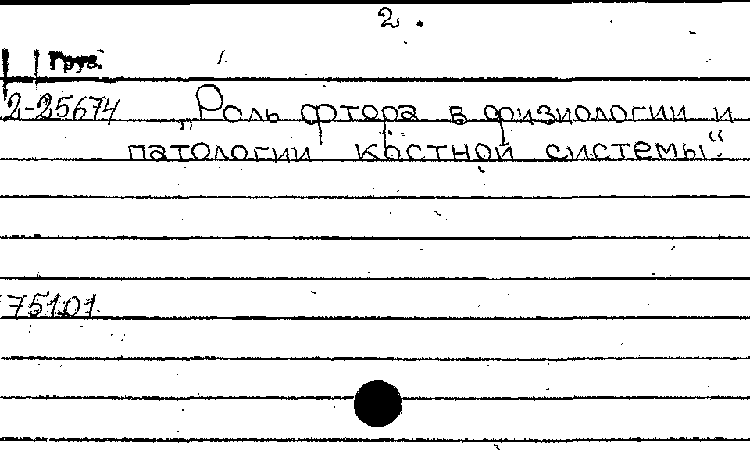 2.
Груз.
2-25674 „Роль фтора в физиологии и
патологии костной системы“.
75101